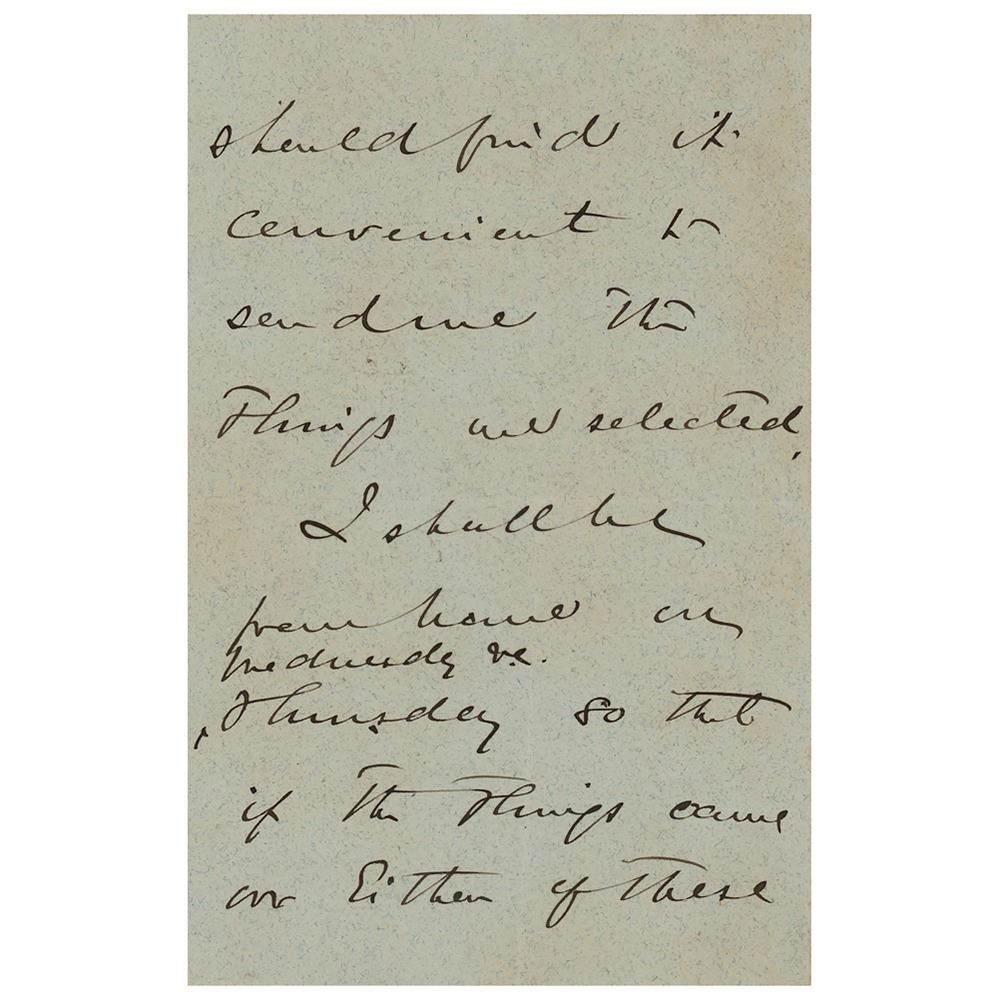 should find it
convenient to
send me the
Things we selected,
I shall be
from home on
Wednesday &
Thursday so that
if the Things came
on Either of these